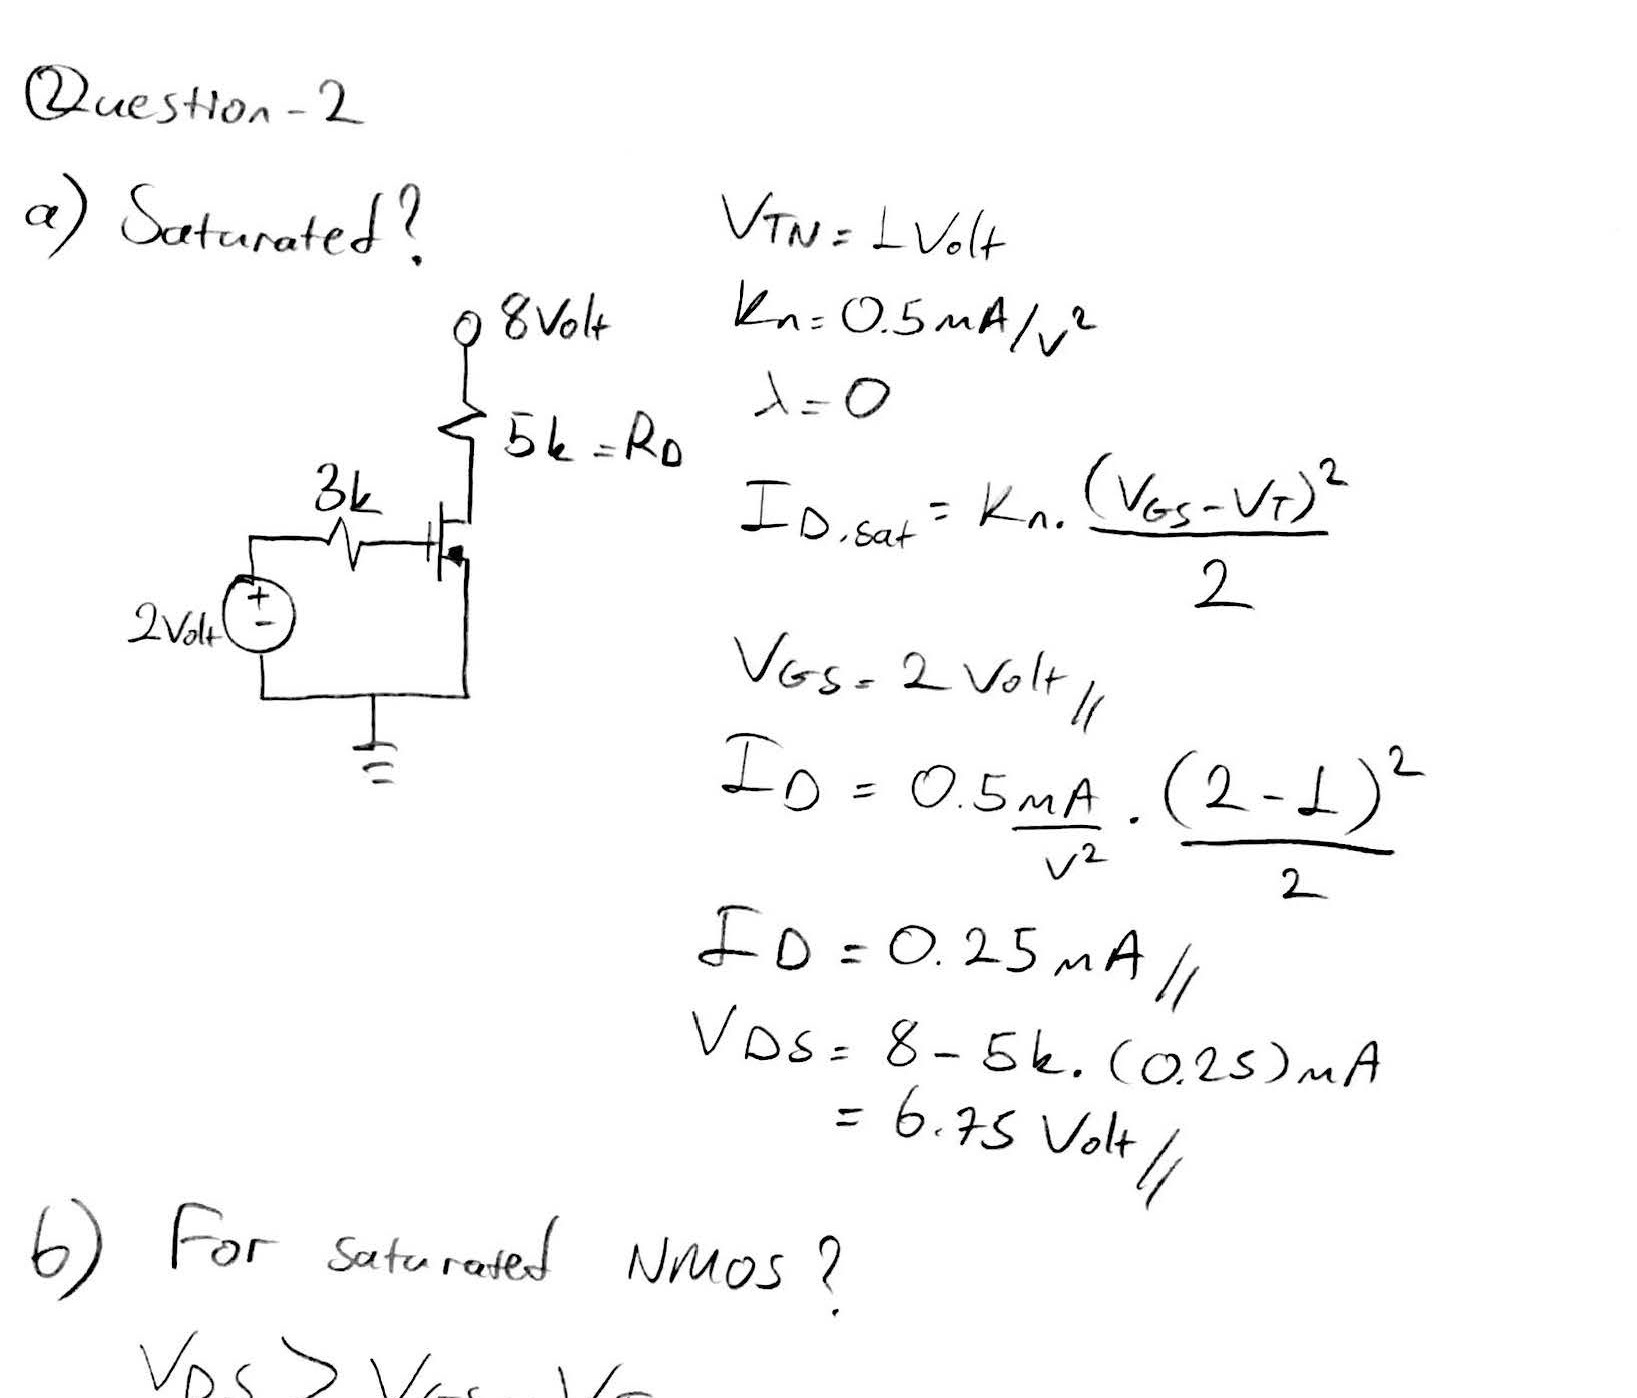 Question-2
a) Saturated?
VTN = 1 Volt
Kn = 0.5 mA/V²
λ = 0
8Volt
5k = RD
3k
2Volt
+
-
ID,sat = Kn. (VGS - VT)² / 2
VGS = 2 Volt //
ID = 0.5 mA/V² . (2 - 1)² / 2
ID = 0.25 mA //
VDS = 8 - 5k. (0.25) mA
= 6.75 Volt //
b) For saturated NMOS?
VDS > VGS - VT